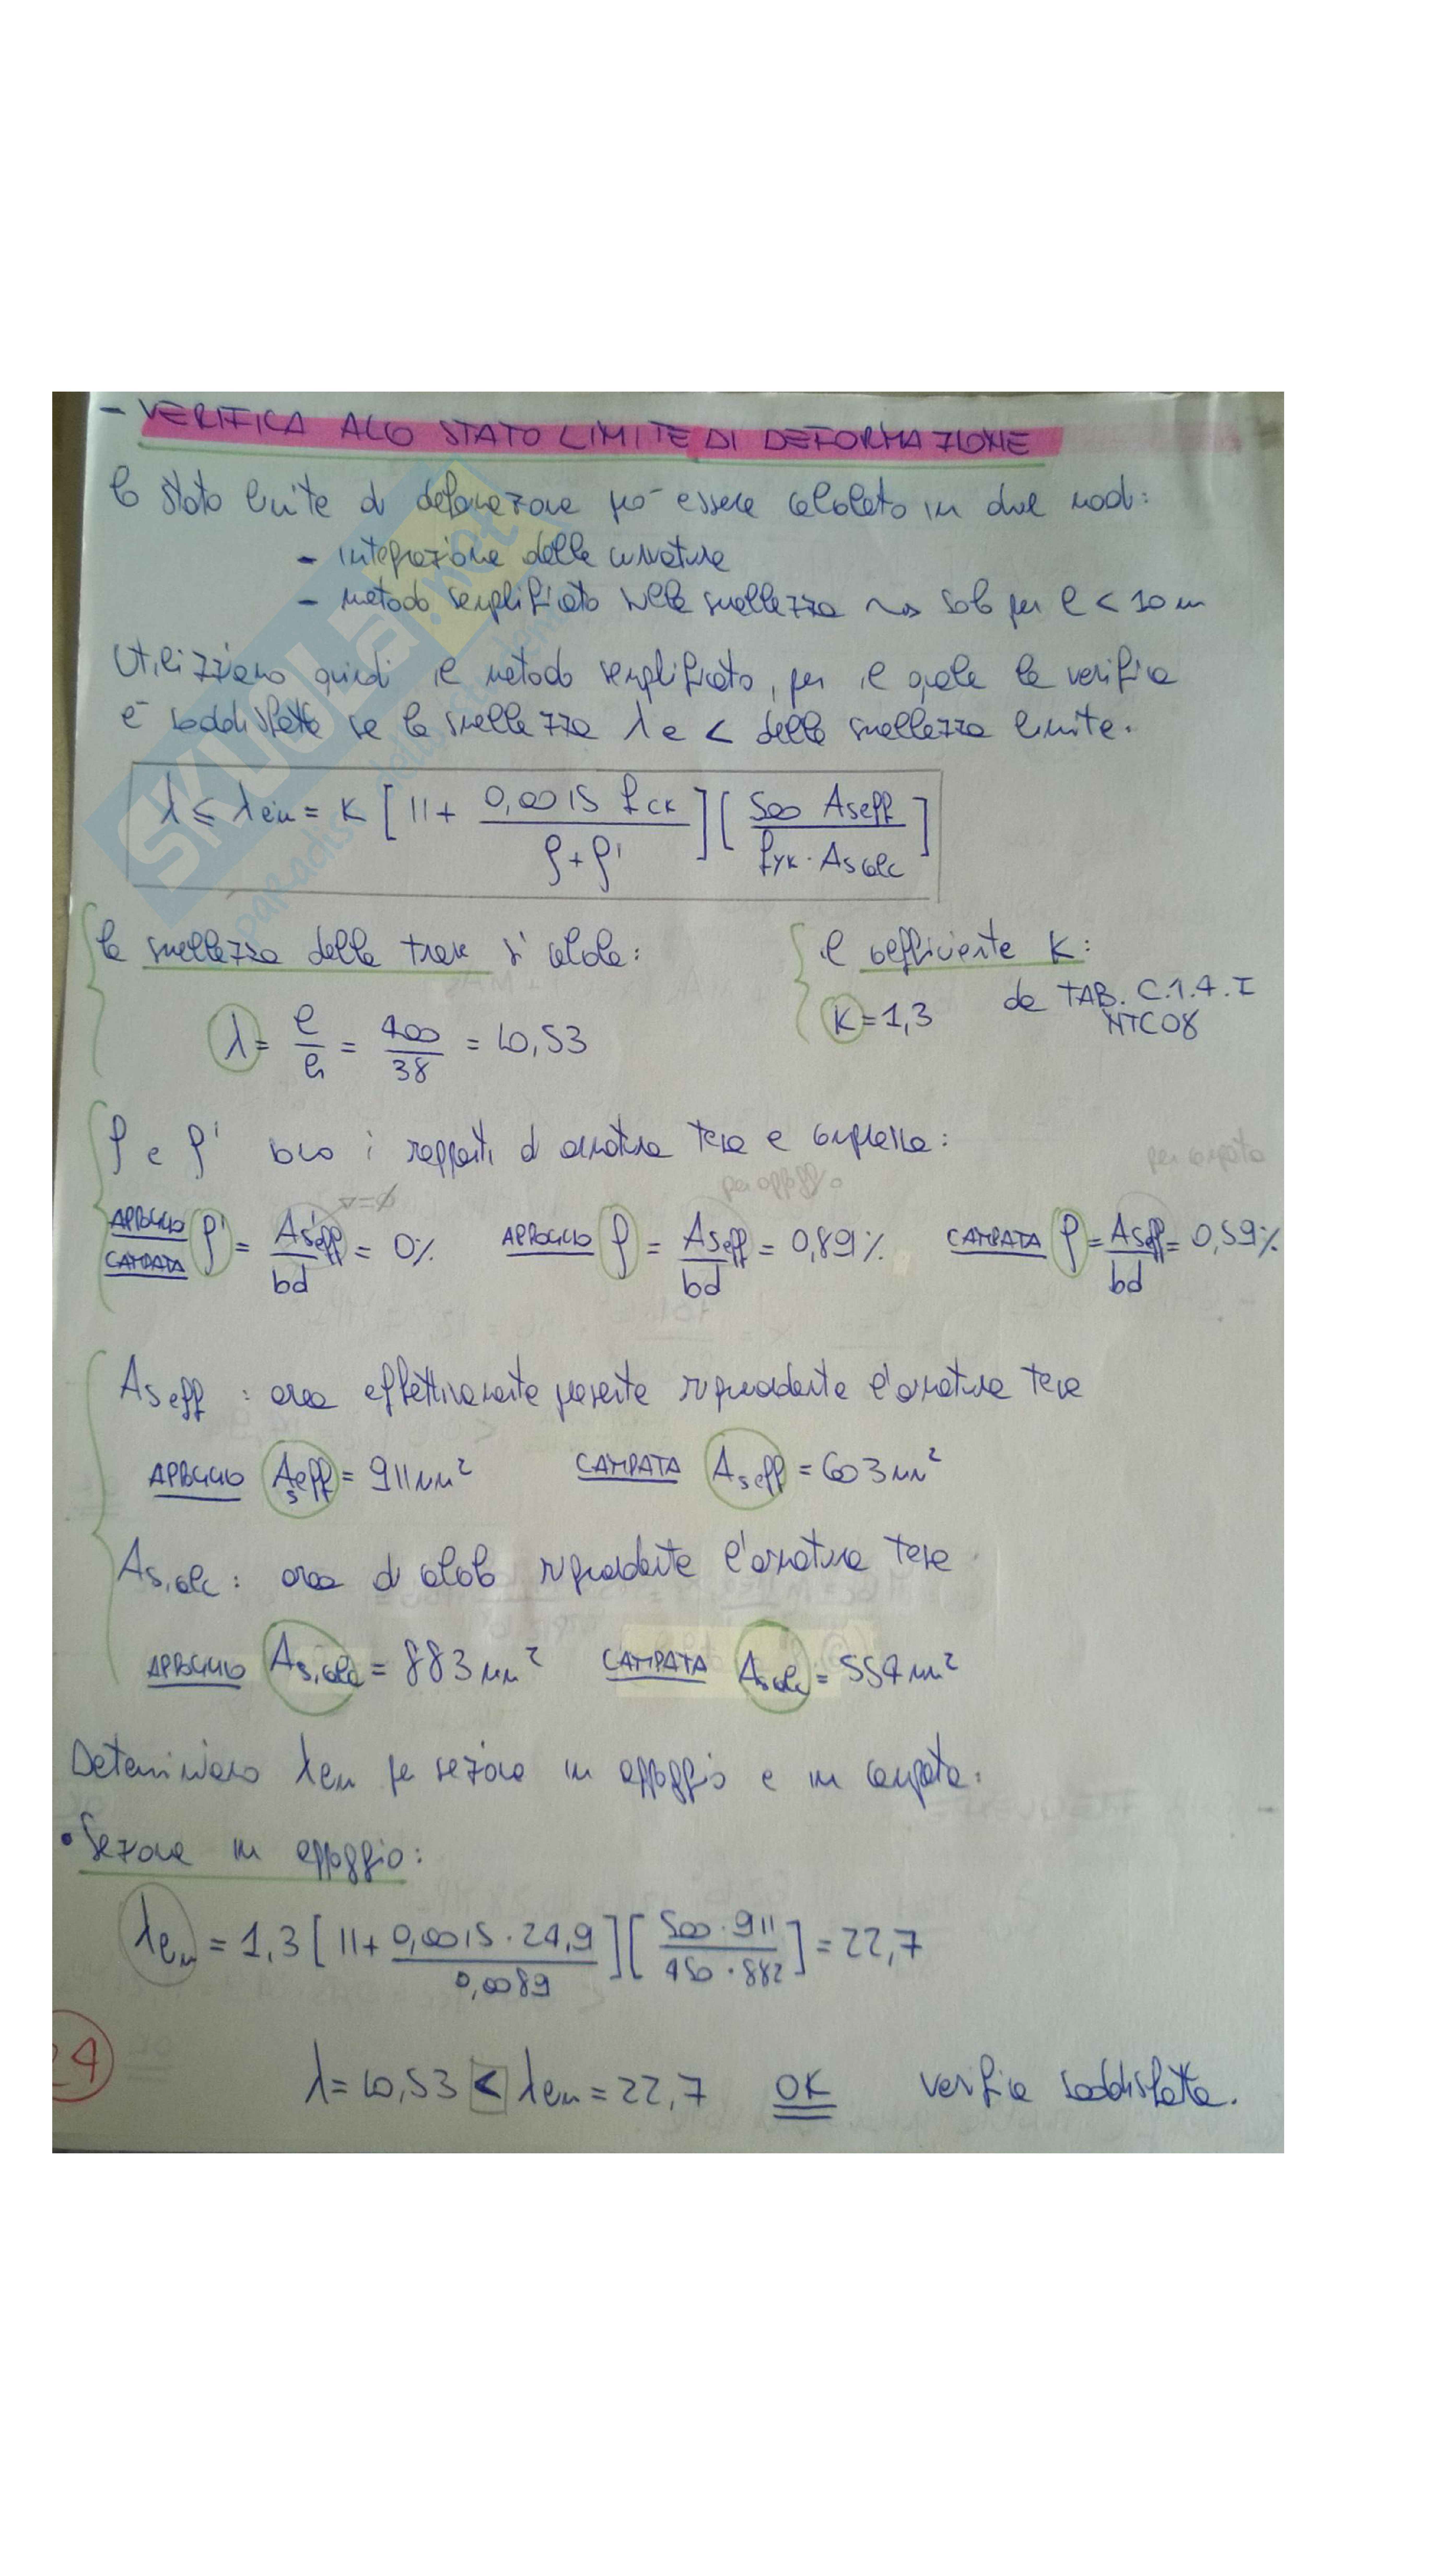 - VERIFICA ALLO STATO LIMITE DI DEFORMAZIONE
lo stato limite di deformazione può essere calcolato in due modi:
- integrazione delle curvature
- metodo semplificato sulla snellezza ~> solo per l < 10 m
Utilizziamo quindi il metodo semplificato, per il quale la verifica
è soddisfatta se la snellezza λ è < della snellezza limite.
λ ≤ λlim = K [ 11 + 0,0015 fck / ρ+ρ' ] [ 500 Aseff / fyk · Ascalc ]
la snellezza della trave si calcola: il coefficiente K:
λ = l/h = 400/38 = 10,53 K = 1,3 da TAB. C.4.1.I NTC08
ρ e ρ' sono i rapporti di armatura tesa e compressa:
per appoggio per campata
APPOGGIO CAMPATA ρ' = As'eff / bd = 0% APPOGGIO ρ = Aseff / bd = 0,89% CAMPATA ρ = Aseff / bd = 0,59%
As eff : area effettivamente presente riguardante l'armatura tesa
APPOGGIO As eff = 911 mm² CAMPATA As eff = 603 mm²
As,calc : area di calcolo riguardante l'armatura tesa
APPOGGIO As,calc = 883 mm² CAMPATA As,calc = 554 mm²
Determiniamo λlim per sezione in appoggio e in campata:
• Sezione in appoggio:
λlim = 1,3 [ 11 + 0,0015 · 24,9 / 0,0089 ] [ 500 · 911 / 450 · 882 ] = 22,7
24
λ = 10,53 < λlim = 22,7 OK verifica soddisfatta.
SKUOLA.net
paradiso dello studente